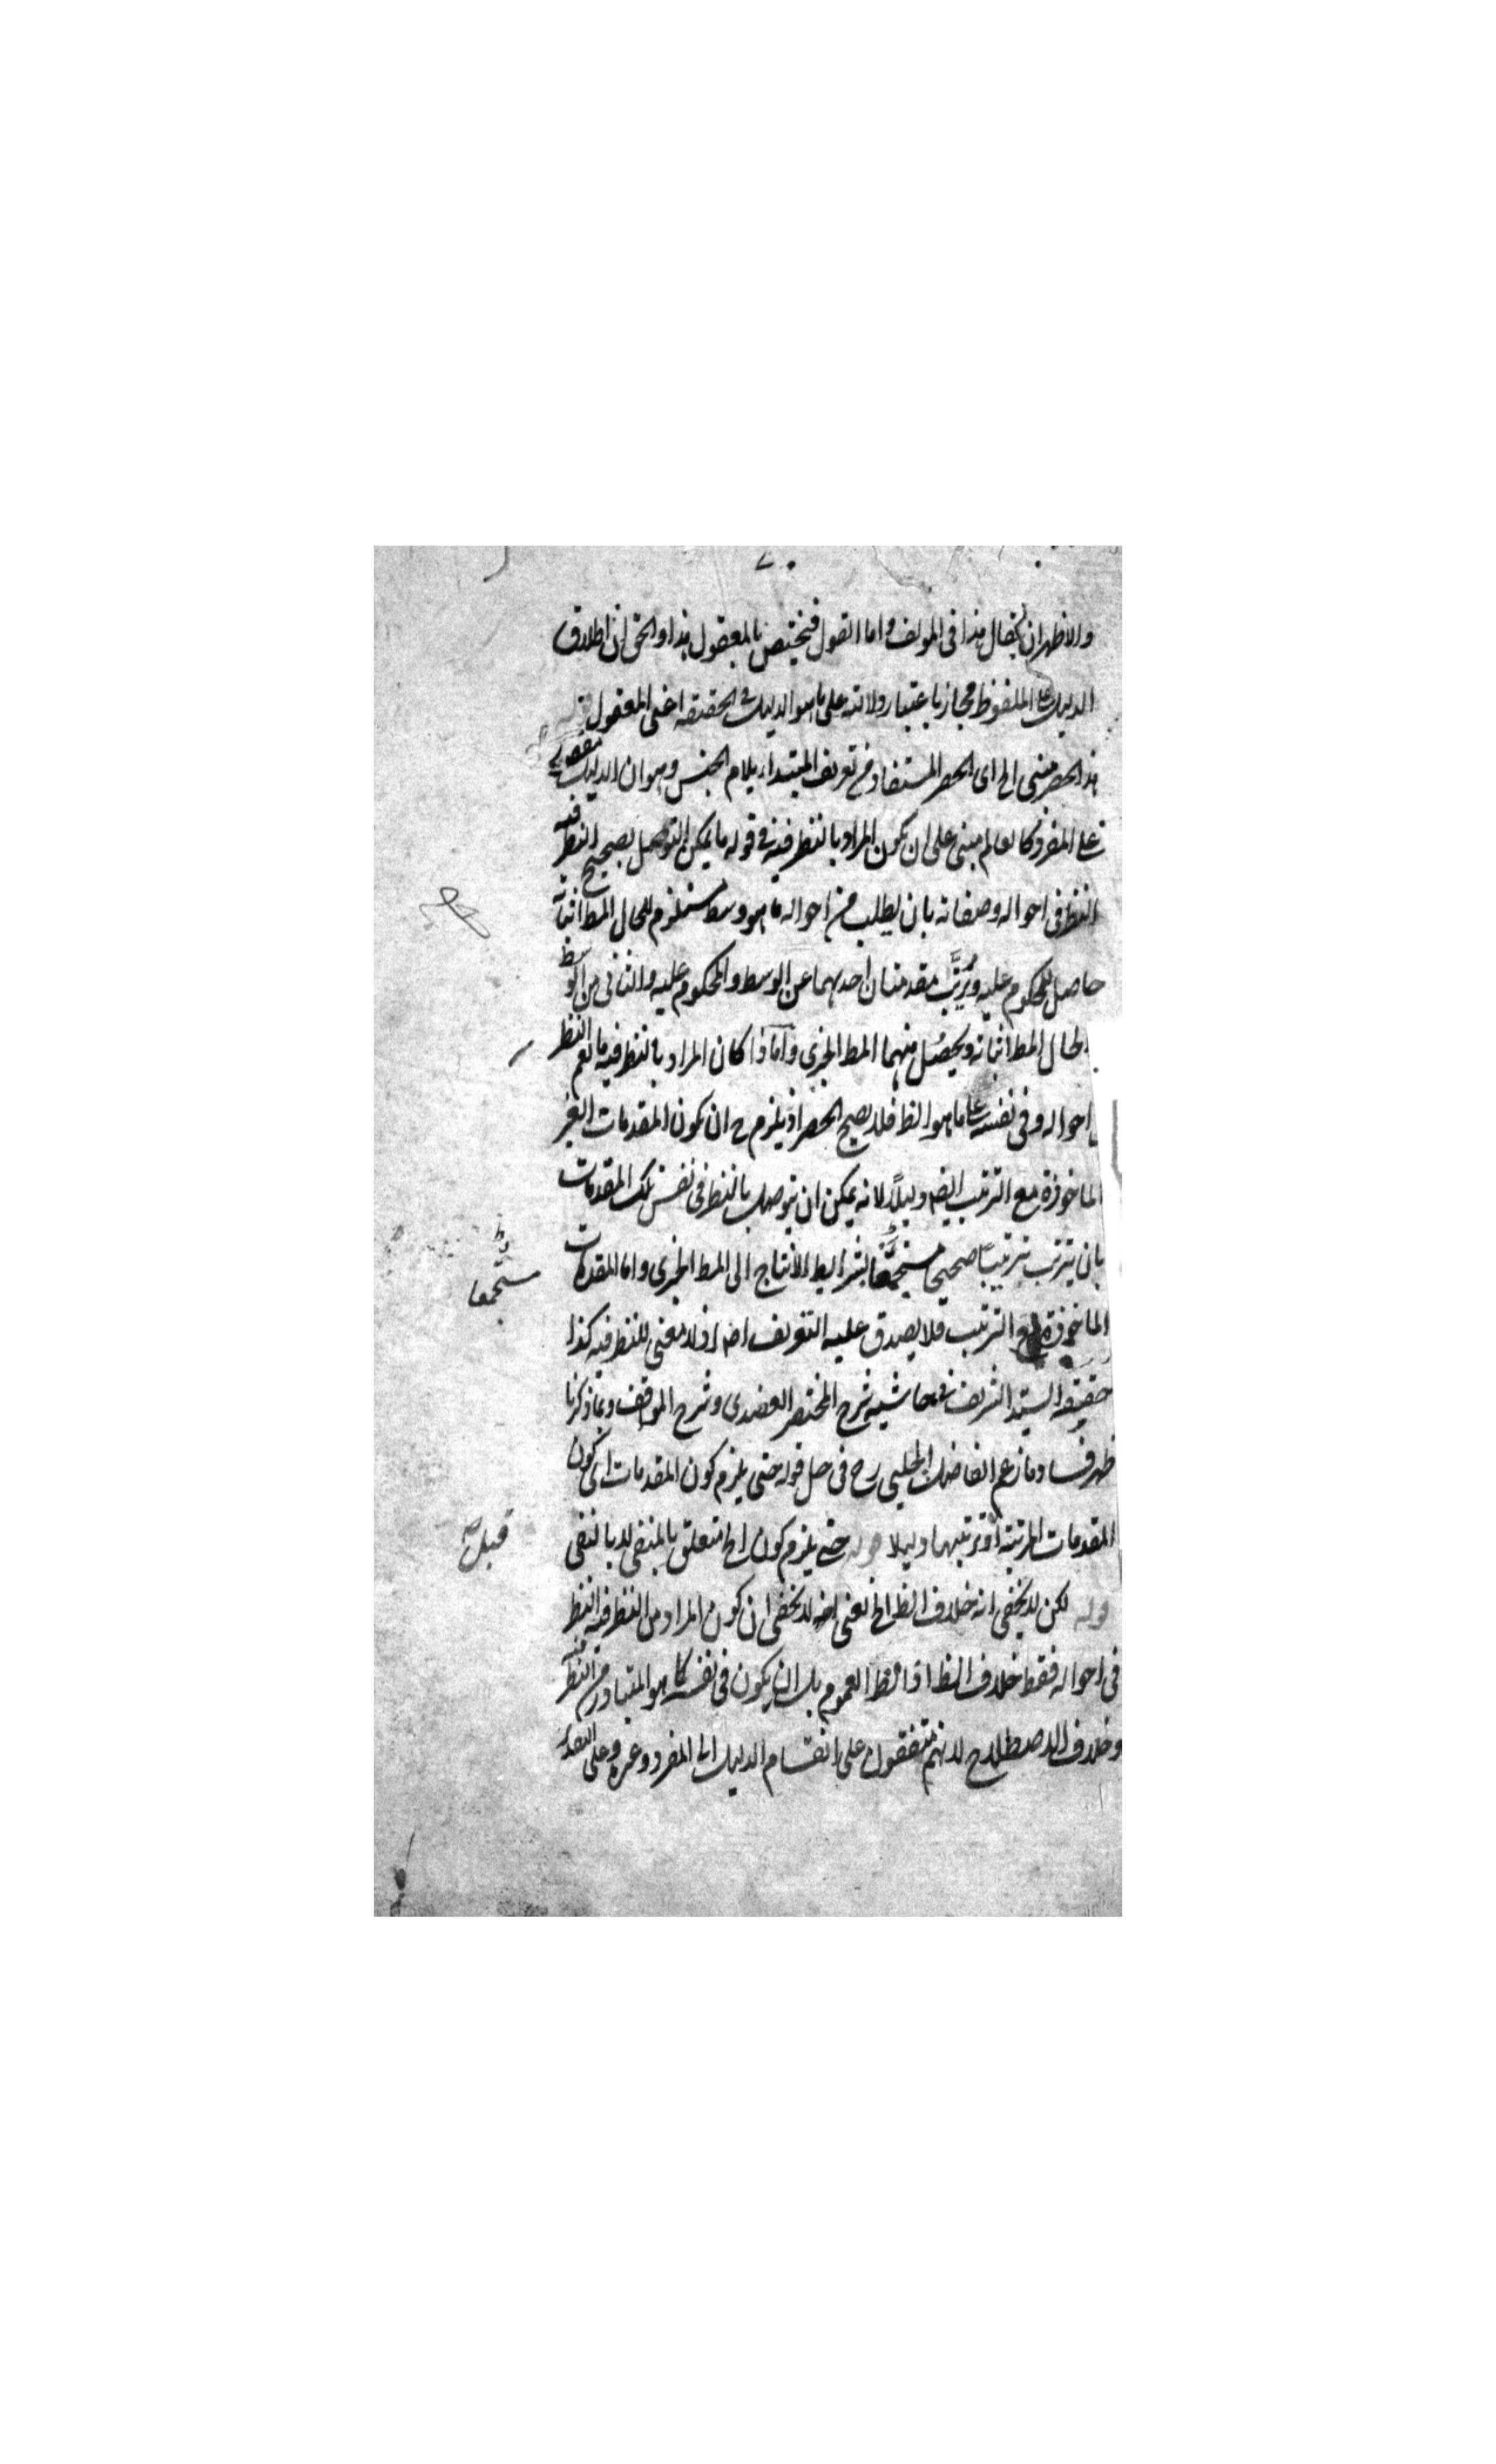 والاظهر ان يقال هذا فى المولف واما القول فيختص بالمعقول هذا والحق ان اطلاق
الدليل على الملفوظ مجاز باعتبار دلالته على ما هو الدليل فى الحقيقة اعنى المعقول قوله
هذا الحصر مبنى الخ اى الحصر المستفاد من تعريف المبتداء بلام الجنس وهو ان الدليل مقصور
على المفرد كالعالم مبنى على ان يكون المراد بالنظر فيه فى قوله ما يمكن التوصل بصحيح النظر فيه
النظر فى احواله وصفاته بان يطلب من احواله ما هو وسط مستلزم للحال المط اثباته
حاصل للمحكوم عليه ويُرَتَّب مقدمتان احديهما من الوسط والمحكوم عليه والثانى من الوسط
والحال المط اثباته ويحصُل منهما المط الخبرى واما اذا كان المراد بالنظر فيه ما يعم النظر
احواله وفى نفسه على ما هو الظ فلا يصح الحصر اذ يلزم ح ان يكون المقدمات الغير
الماخوذة مع الترتيب ايضه دليلاً لانه يمكن ان يتوصل بالنظر فى نفس تلك المقدمات
بان يترتب ترتيبًا صحيحا مستجمعًا لشرايط الانتاج الى المط الخبرى واما المقدمات
الماخوذة مع الترتيب فلا يصدق عليه التعريف اصه اذ لا معنى للنظر فيه كذا
حققه السيد الشريف فى حاشيه شرح المختصر العضدى وشرح المواقف وبما ذكرنا
ظهر فساد ما زعم الفاضل الجلبى رح فى حل قوله حتى يلزم كون المقدمات اى كون
المقدمات المرتبة او ترتيبها دليلا قوله حتى يلزم كون الخ متعلق بالمنفى لا بالنفى
قوله لكن لا يخفى انه خلاف الظ الخ يعنى انه لا يخفى ان كون المراد من النظر فيه النظر
فى احواله فقط خلاف الظ اذ الظ العموم بل ان يكون فى نفسه كما هو المتبادر من النظر فيه
وخلاف الاصطلاح لانهم متفقون على انقسام الدليل الى المفرد وغيره وعلى التقدير
مستجمعا